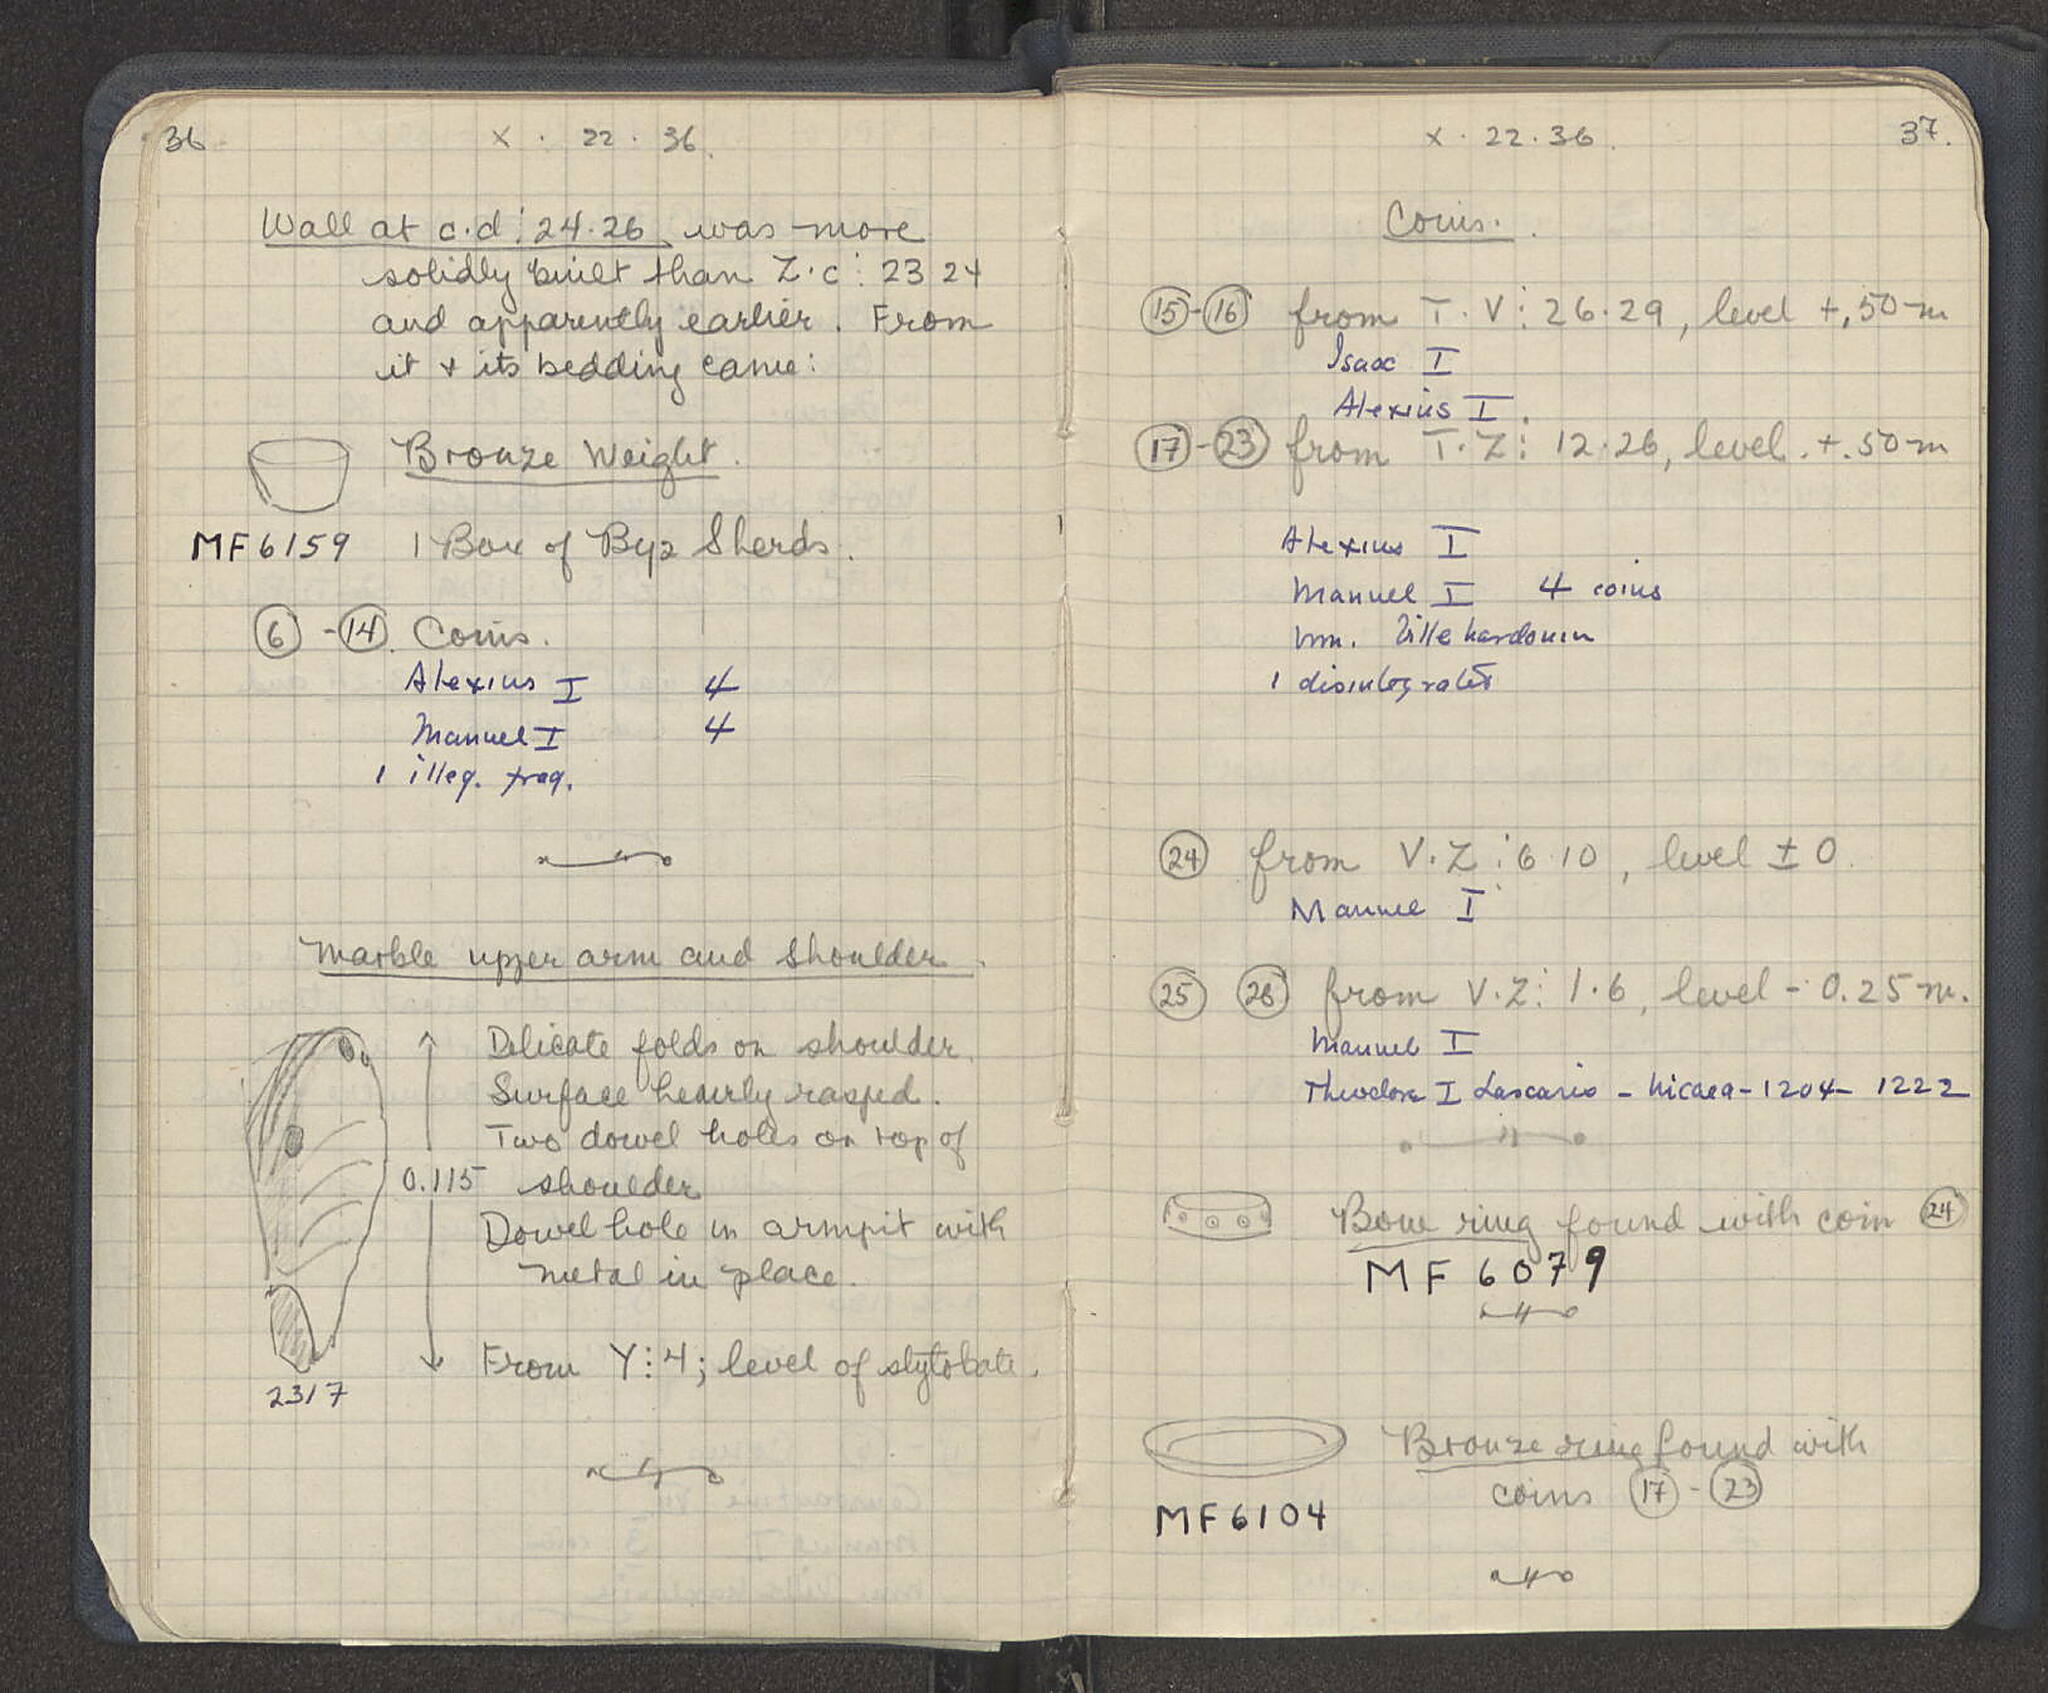 36
X . 22 . 36.
Wall at c.d : 24.26 was more
solidly built than Z.c : 23 24
and apparently earlier. From
it + its bedding came:
Bronze Weight.
MF6159
1 Box of Byz Sherds.
6 - 14 Coins.
Alexius I 4
Manuel I 4
1 illeg. frag.
Marble upper arm and shoulder.
Delicate folds on shoulder.
Surface heavily rasped.
Two dowel holes on top of
0.115 shoulder
Dowel hole in armpit with
metal in place.
From Y:4; level of stylobate.
2317
X . 22 . 36.
37.
Coins.
15 - 16 from T.V : 26.29, level +.50 m
Isaac I
Alexius I.
17 - 23 from T.Z : 12.26, level +.50 m
Alexius I
Manuel I 4 coins
Wm. Villehardouin
1 disintegrated
24 from V.Z : 6.10, level ± 0.
Manuel I
25 26 from V.Z : 1.6, level - 0.25 m.
Manuel I
Theodore I Lascaris - Nicaea - 1204 - 1222
Bone ring found with coin 24
MF 6079
Bronze ring found with
coins 17 - 23
MF6104